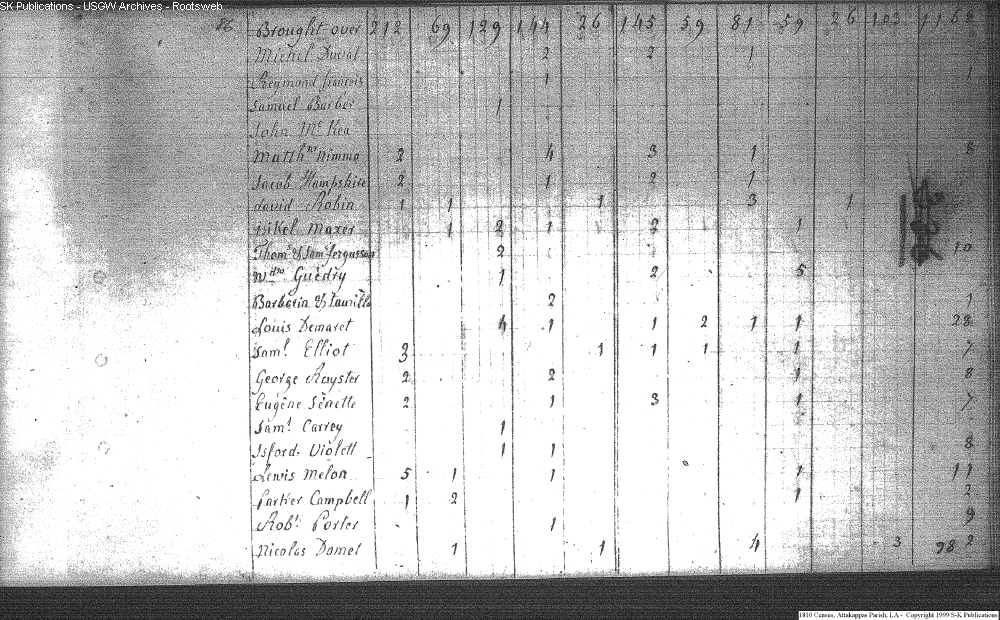 SK Publications - USGW Archives - Rootsweb
26 Brought over 212 69 129 144 26 145 59 81 59 26 103 1168
Michel Duval 2 2 1
Reymond francois 1 1
Samuel Barber 1
John Mc Kea
Matthw Nimmo 2 4 3 1 8
Jacob Hampshire 2 1 2 1
david Robin 1 1 1 3 1
Maxer 1 2 1 2 1
Thoms & Saml fergusson 2 10
Wm Guédry 1 2 5
Barbarin & 2 1
Louis Demaret 4 1 1 2 1 1 28
Saml Elliot 3 1 1 1 1 7
George Royster 2 2 1 8
Eugêne Senette 2 1 3 1 7
Saml Carrey 1
Isford Violett 1 1 8
Lewis Melon 5 1 1 1 11
Parker Campbell 1 2 1 2
Robt Porter 1 9
Nicolas Domet 1 1 4 3 98 2
1810 Census, Attakappas Parish, LA - Copyright 1999 S-K Publications